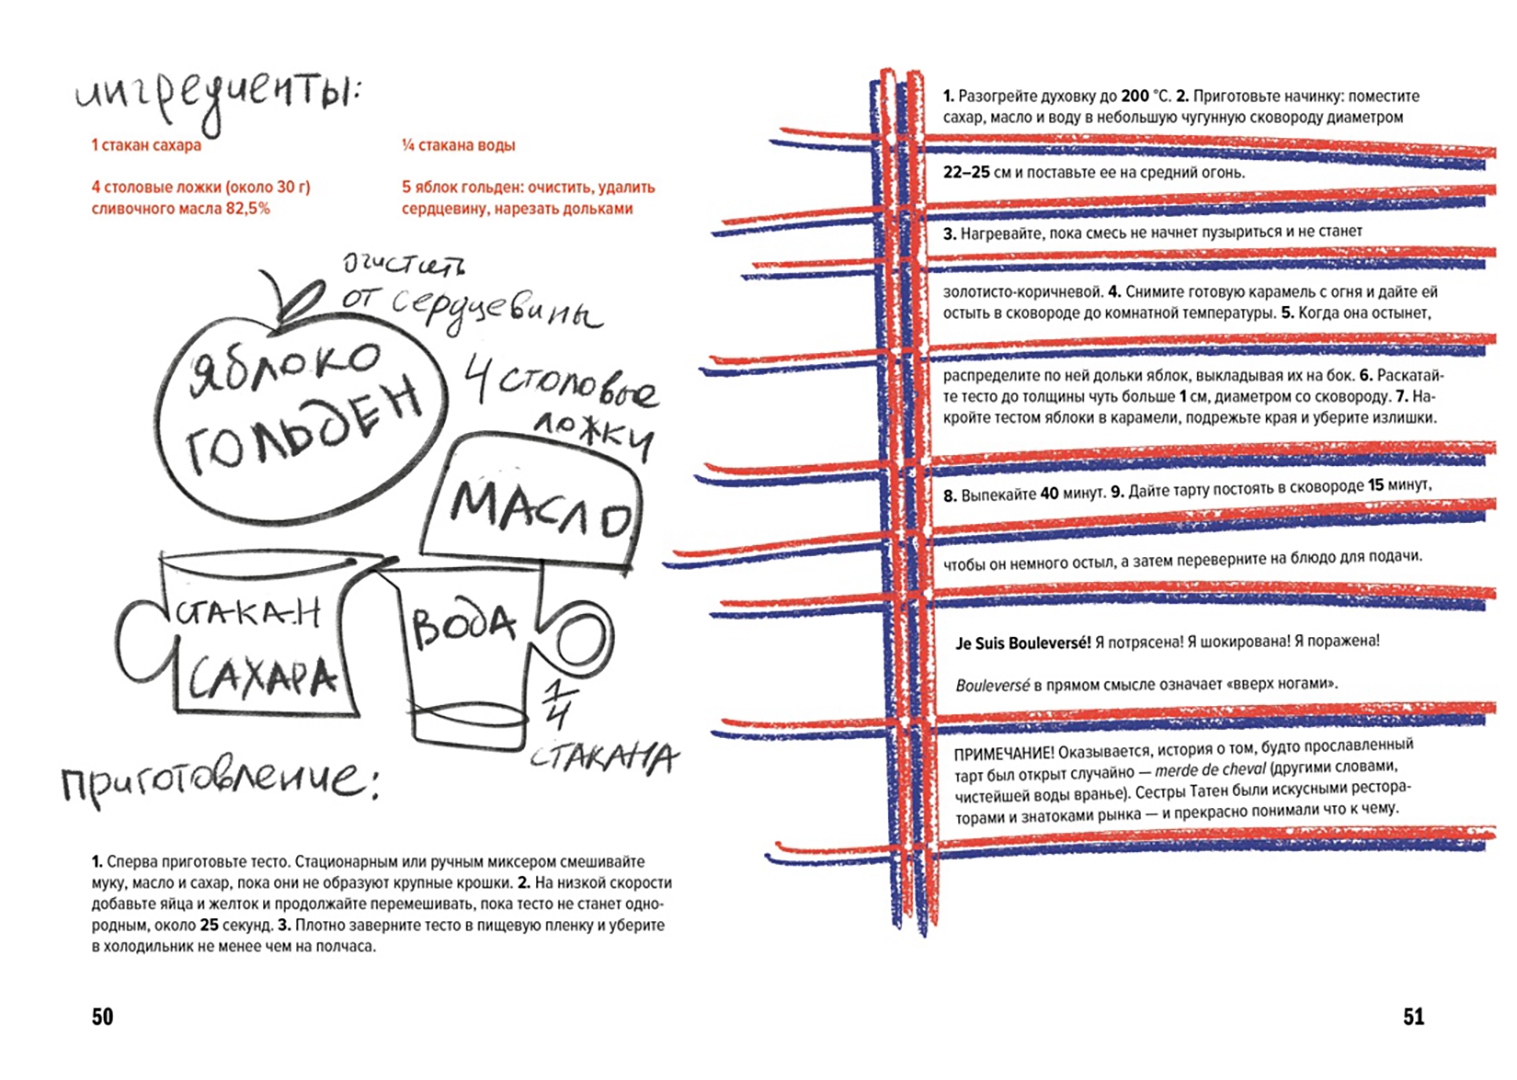 ингредиенты:
1 стакан сахара
¼ стакана воды
4 столовые ложки (около 30 г)
сливочного масла 82,5%
5 яблок гольден: очистить, удалить
сердцевину, нарезать дольками
очистить
от сердцевины
ЯБЛОКО
ГОЛЬДЕН
4 столовые
ложки
МАСЛО
СТАКАН
САХАРА
ВОДА
1/4
СТАКАНА
приготовление:
1. Сперва приготовьте тесто. Стационарным или ручным миксером смешивайте
муку, масло и сахар, пока они не образуют крупные крошки. 2. На низкой скорости
добавьте яйца и желток и продолжайте перемешивать, пока тесто не станет одно-
родным, около 25 секунд. 3. Плотно заверните тесто в пищевую пленку и уберите
в холодильник не менее чем на полчаса.
50
1. Разогрейте духовку до 200 °С. 2. Приготовьте начинку: поместите
сахар, масло и воду в небольшую чугунную сковороду диаметром
22–25 см и поставьте ее на средний огонь.
3. Нагревайте, пока смесь не начнет пузыриться и не станет
золотисто-коричневой. 4. Снимите готовую карамель с огня и дайте ей
остыть в сковороде до комнатной температуры. 5. Когда она остынет,
распределите по ней дольки яблок, выкладывая их на бок. 6. Раскатай-
те тесто до толщины чуть больше 1 см, диаметром со сковороду. 7. На-
кройте тестом яблоки в карамели, подрежьте края и уберите излишки.
8. Выпекайте 40 минут. 9. Дайте тарту постоять в сковороде 15 минут,
чтобы он немного остыл, а затем переверните на блюдо для подачи.
Je Suis Bouleversé! Я потрясена! Я шокирована! Я поражена!
Bouleversé в прямом смысле означает «вверх ногами».
ПРИМЕЧАНИЕ! Оказывается, история о том, будто прославленный
тарт был открыт случайно — merde de cheval (другими словами,
чистейшей воды вранье). Сестры Татен были искусными рестора-
торами и знатоками рынка — и прекрасно понимали что к чему.
51